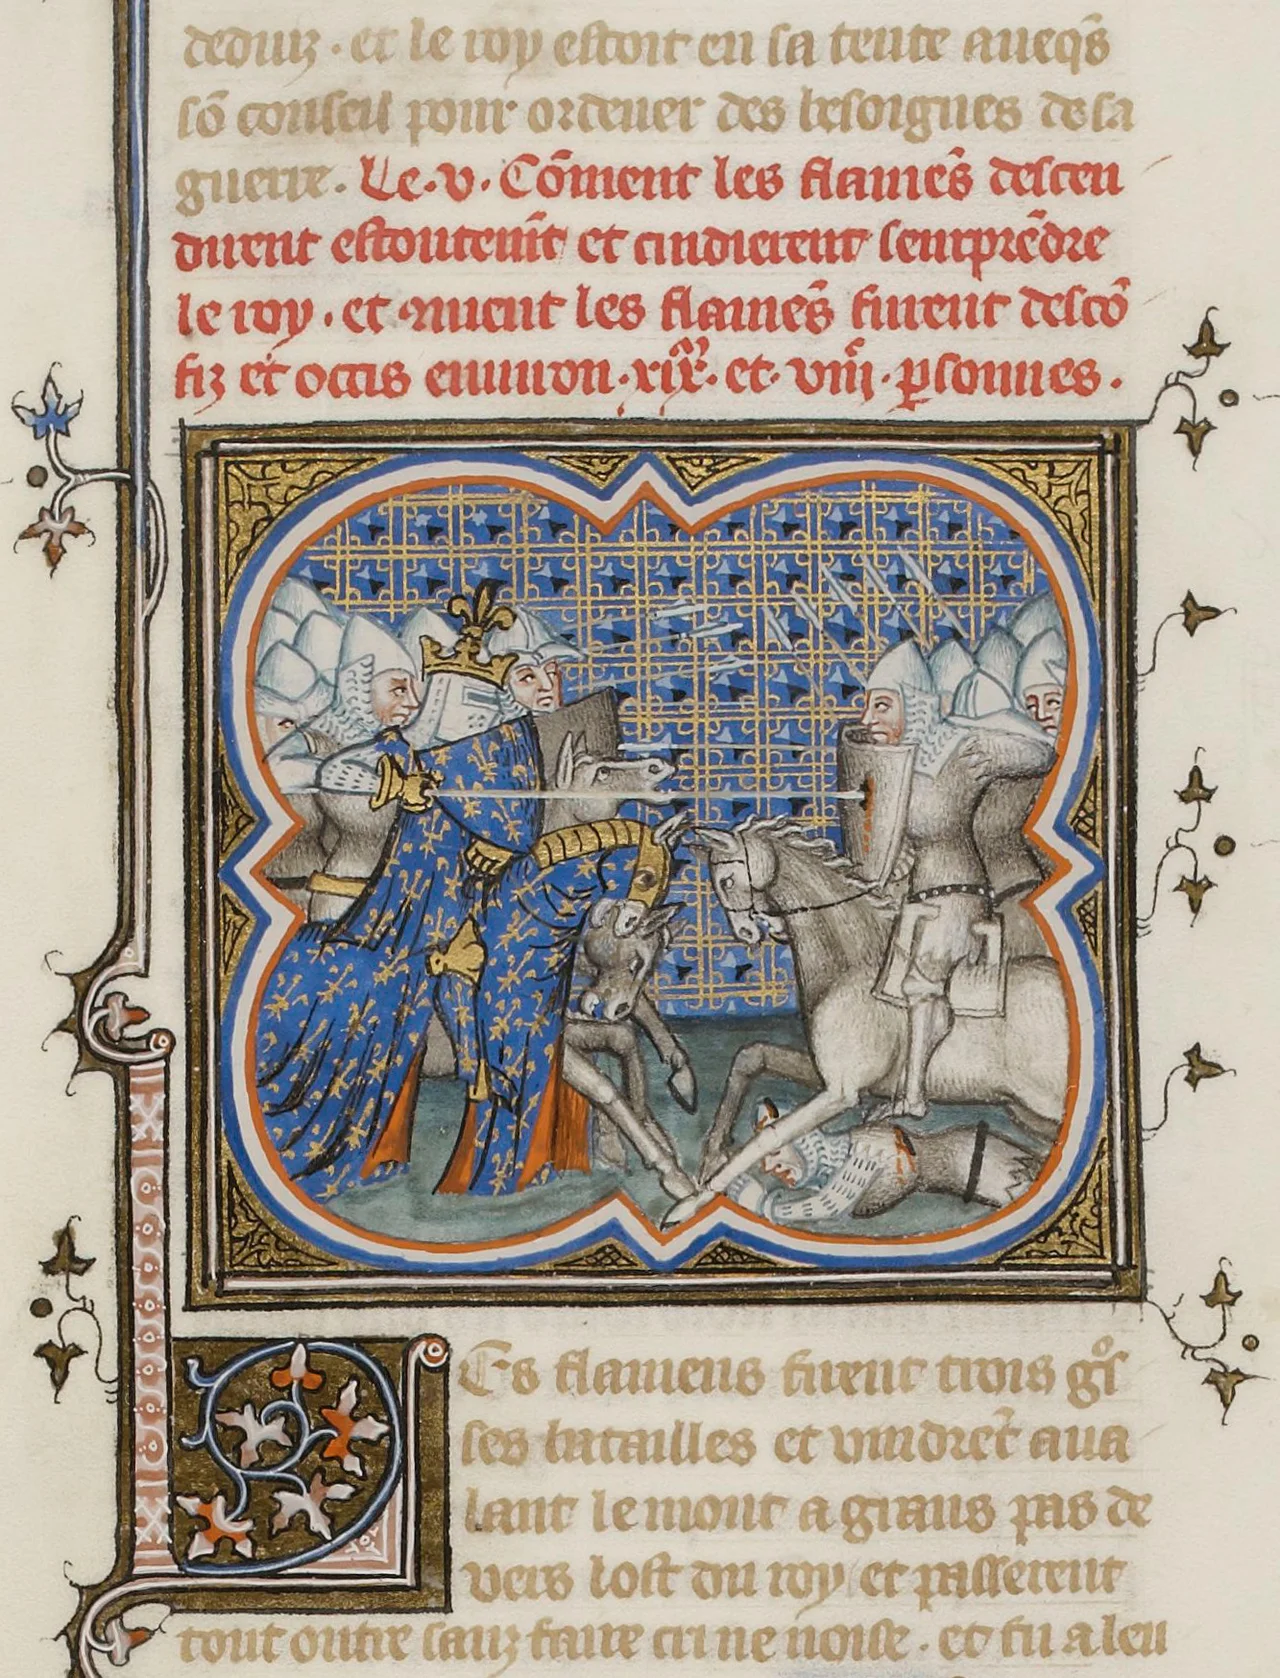 deduiz . et le roy estoit en sa tente aueqs̄
sō conseil pour ordener des besoignes de sa
guerre . Le . v . Cōment les flamēs descen
dirent estoutemt̄ et cuidierent seurprēdre
le roy . et ꝯment les flamēs furent descō
fiz et occis enuiron . xixͫ . et . viiiͨ . ꝑsonnes .
Es flamens firent trois gͦs
ses batailles et vindrēt aua
lant le mont a grans pas de
vers lost du roy et passerent
tout outre sanz faire cri ne noise . et fu a leu